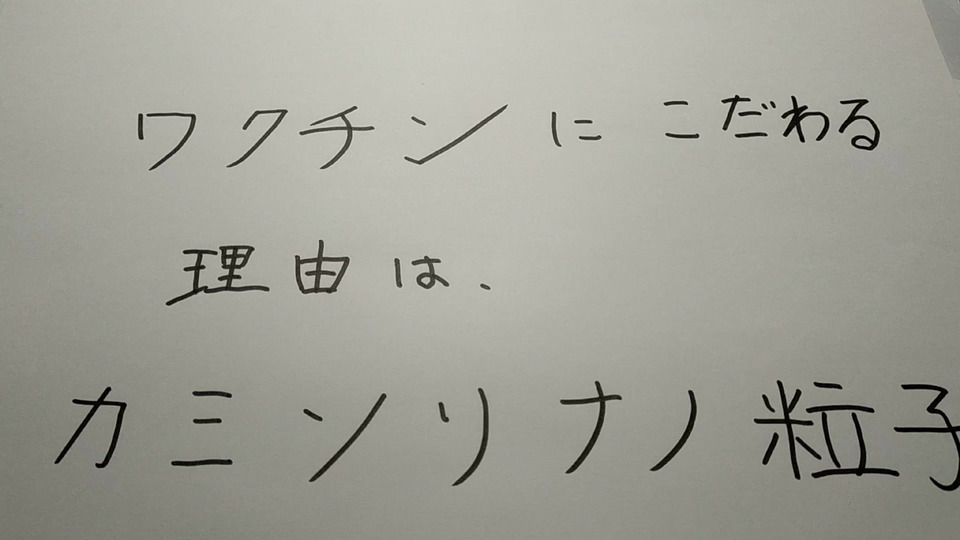 ワクチンにこだわる
理由は、
カミソリナノ粒子